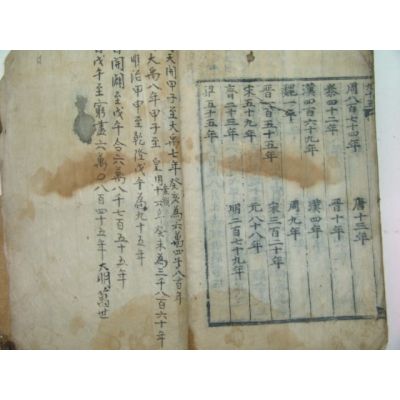 周八百七十四年　唐十三年
秦四十二年　晉十年
漢四百六十九年　漢四年
魏一年　周九年
晉一百五十五年　宋三百二十年
宋五十九年　元八十八年
齊二十三年　明二百七十九年
梁五十五年
天開甲子至大禹七年癸亥為六萬四千八百年
大禹八年甲子至皇明十六癸未為三千八百六十年
甲申至乾隆戊午為九十五年
自開闢至戊午合六萬八千七百五十五年
戊午至窮六萬〇八百四十五年　大明萬世